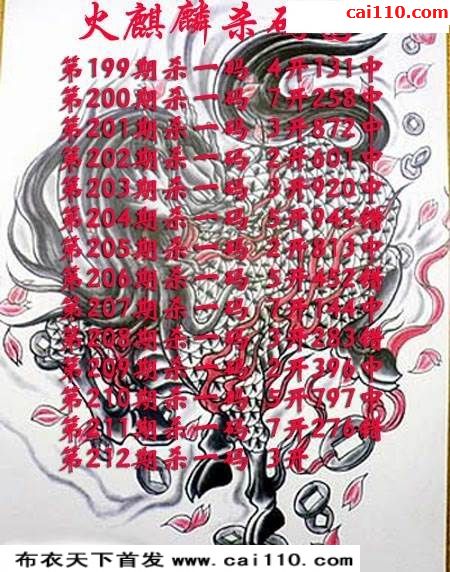 cai110.com
火麒麟杀码
第199期杀一码 4开131中
第200期杀一码 7开258中
第201期杀一码 3开872中
第202期杀一码 2开601中
第203期杀一码 3开920中
第204期杀一码 5开945错
第205期杀一码 2开813中
第206期杀一码 5开452错
第207期杀一码 开144中
第208期杀一码 3开283错
第209期杀一码 2开396中
第210期杀一码 5开797中
第211期杀一码 7开276错
第212期杀一码 3开
布衣天下首发 www.cai110.com